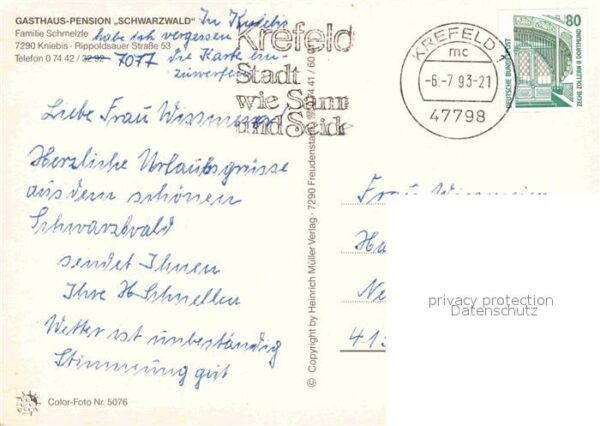 GASTHAUS-PENSION „SCHWARZWALD"
Familie Schmelzle
7290 Kniebis · Rippoldsauer Straße 53
Telefon 0 74 42 / 32 92 7077
In Kniebis
habe ich vergessen
die Karte ein-
zuwerfen
Liebe Frau
Herzliche Urlaubsgrüsse
aus dem schönen
Schwarzwald
sendet Ihnen
Ihre H Schnellen
Wetter ist unbeständig
Stimmung gut
Color-Foto Nr. 5076
© Copyright by Heinrich Müller Verlag · 7290 Freudenstadt 74 41 / 60
Krefeld
Stadt
wie Samt
und Seide
KREFELD 1
mc
-6.-7.93-21
47798
80
DEUTSCHE BUNDESPOST
ZECHE ZOLLERN II DORTMUND
Frau
Ha
Ne
413
privacy protection
Datenschutz